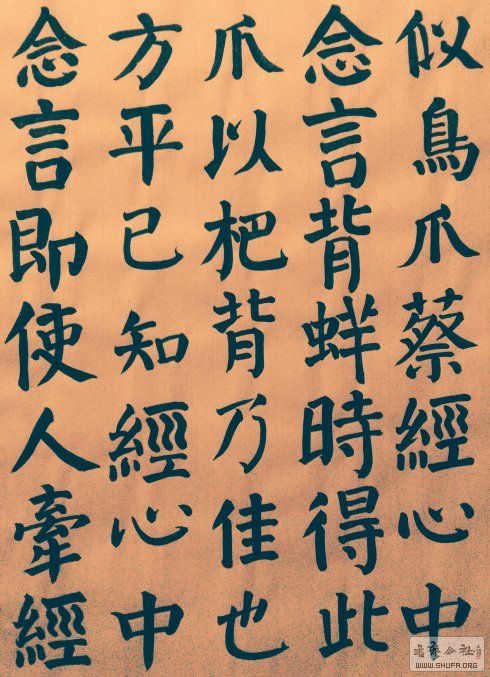 似鳥爪蔡經心中
念言背蛘時得此
爪以杷背乃佳也
方平已知經心中
念言即使人牽經
WWW.SHUFA.ORG